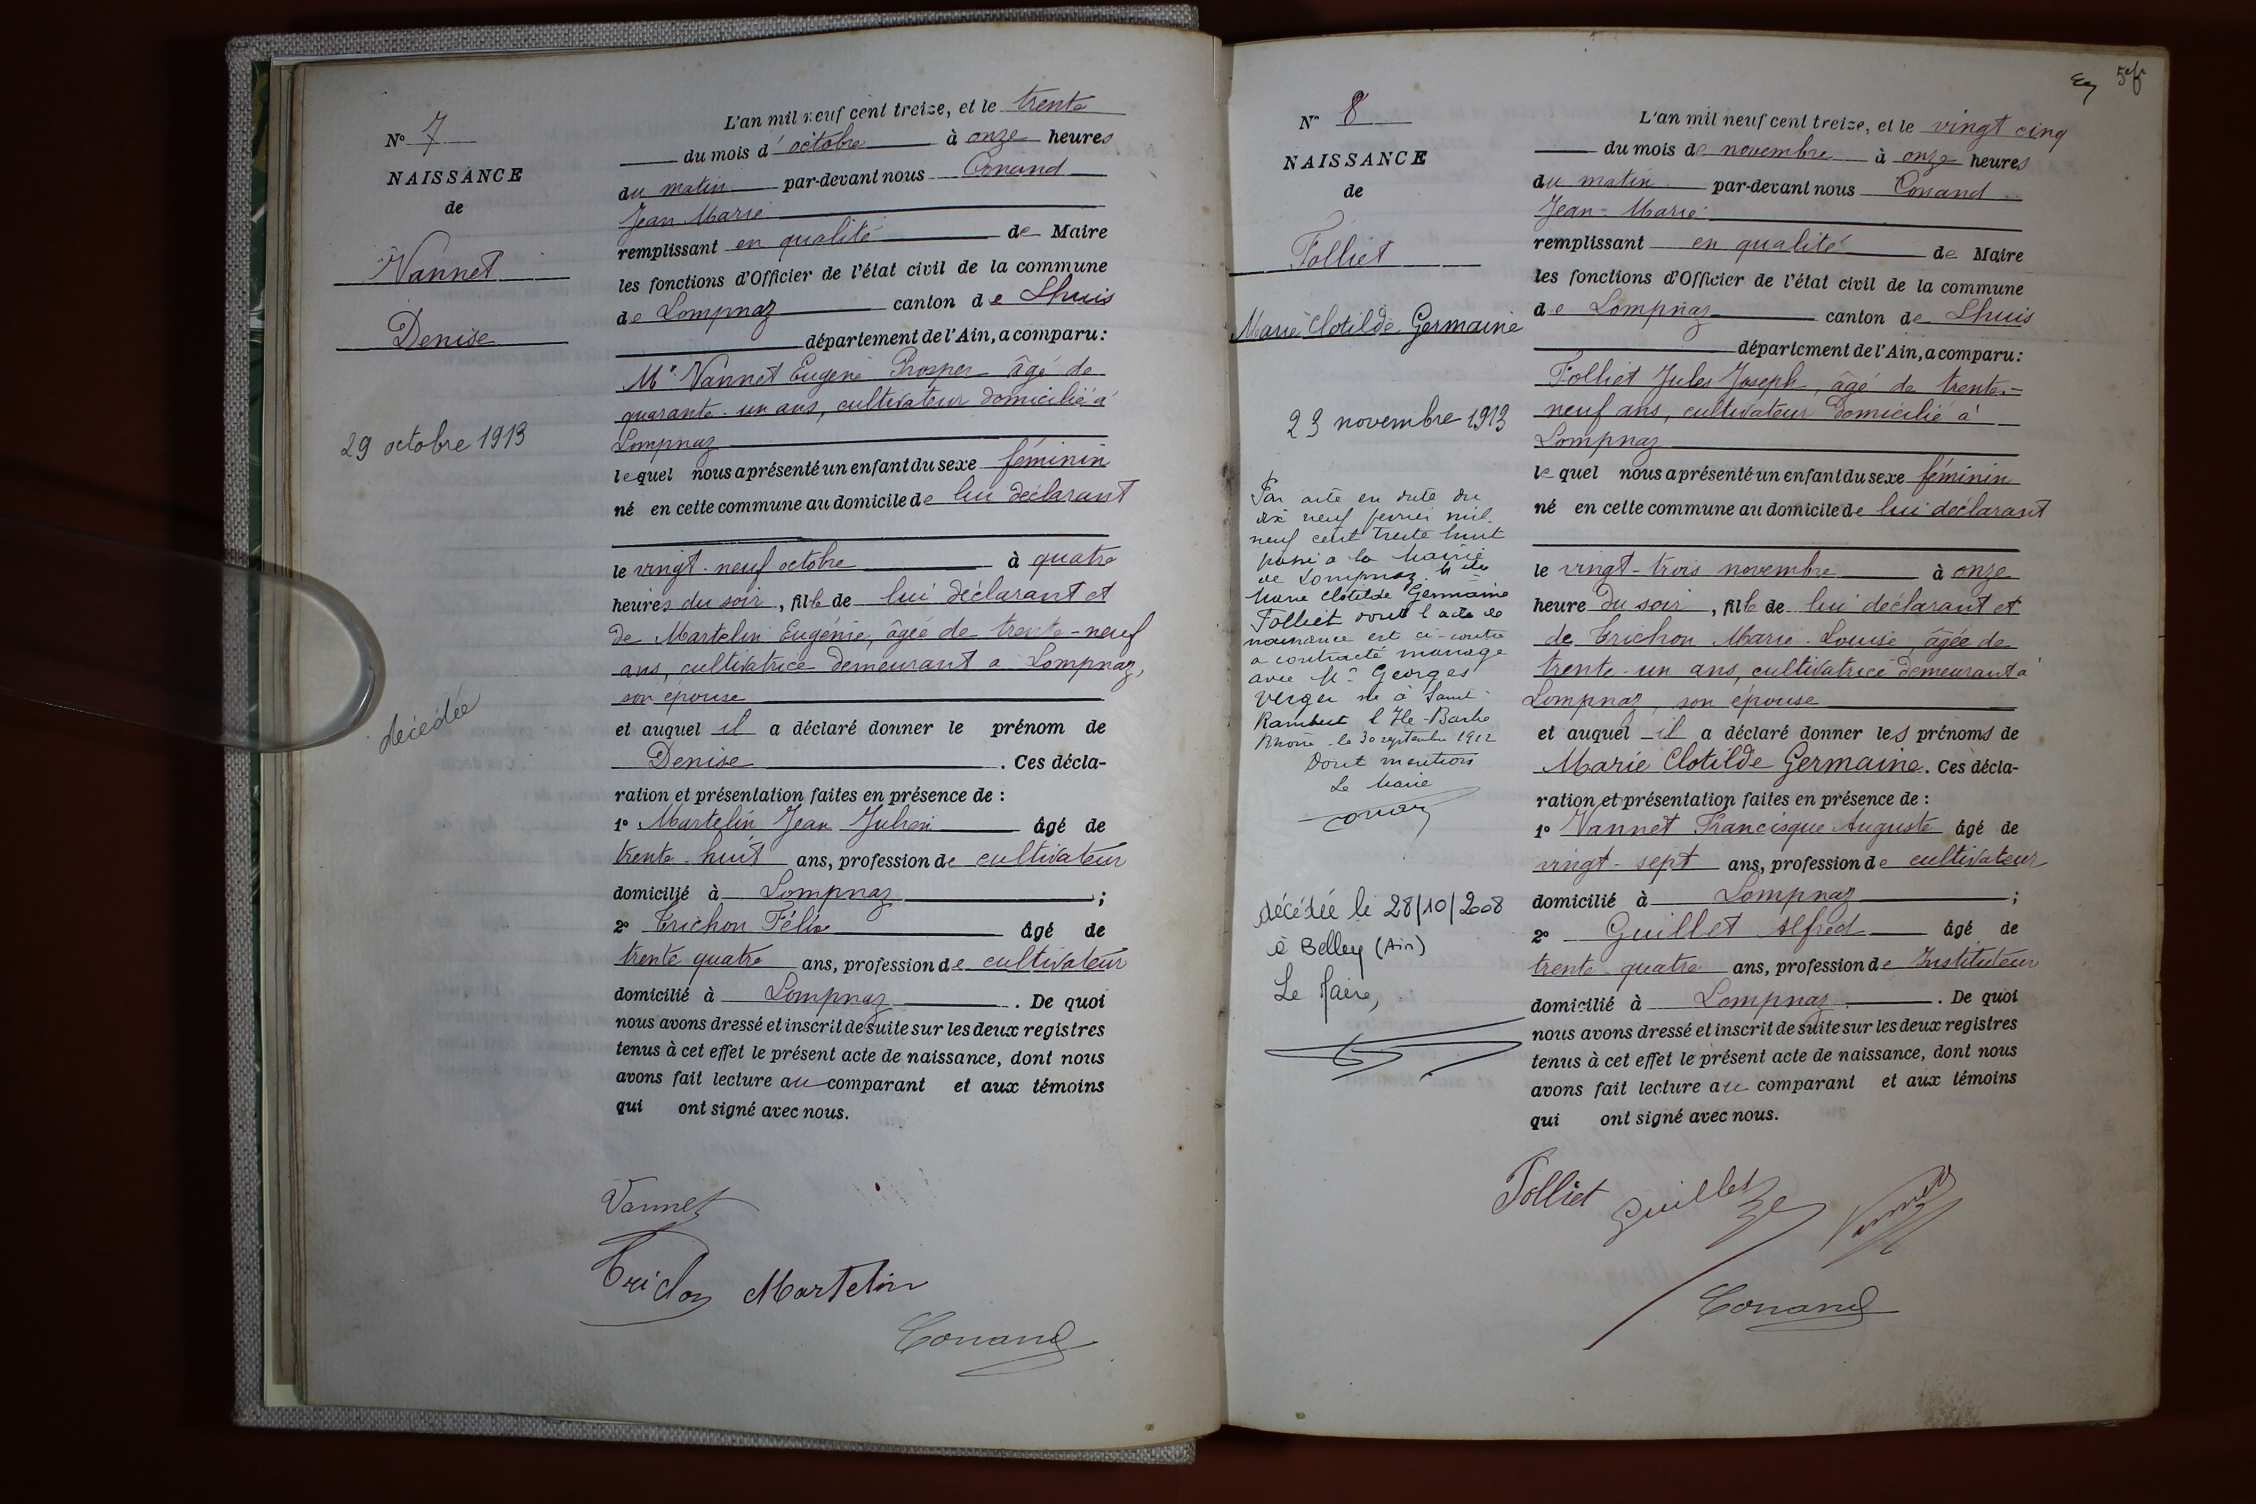 N° 7
NAISSANCE
de
Vannet
Denise
29 octobre 1913
décédée
L'an mil neuf cent treize, et le trente
du mois d'octobre à onze heures
du matin par-devant nous Conand
Jean Marie
remplissant en qualité de Maire
les fonctions d'Officier de l'état civil de la commune
de Lompnaz canton de Lhuis
département de l'Ain, a comparu :
Mr Vannet Eugène Prosper âgé de
quarante-un ans, cultivateur domicilié à
Lompnaz
lequel nous a présenté un enfant du sexe féminin
né en cette commune au domicile de lui déclarant
le vingt-neuf octobre à quatre
heures du soir, fille de lui déclarant et
de Martelin Eugénie, âgée de trente-neuf
ans, cultivatrice demeurant à Lompnaz,
son épouse
et auquel il a déclaré donner le prénom de
Denise. Ces décla-
ration et présentation faites en présence de :
1° Martelin Jean Julien âgé de
trente-huit ans, profession de cultivateur
domicilié à Lompnaz ;
2° Trichon Félix âgé de
trente quatre ans, profession de cultivateur
domicilié à Lompnaz. De quoi
nous avons dressé et inscrit de suite sur les deux registres
tenus à cet effet le présent acte de naissance, dont nous
avons fait lecture au comparant et aux témoins
qui ont signé avec nous.
Vannet
Trichon Martelin
Conand
N° 8
NAISSANCE
de
Folliet
Marie Clotilde Germaine
23 novembre 1913
Par acte en date du
dix neuf février mil
neuf cent trente huit
passé à la Mairie
de Lompnaz Mlle
Marie Clotilde Germaine
Folliet dont l'acte de
naissance est ci-contre
a contracté mariage
avec Mr Georges
Verger né à Saint-
Rambert l'Ile-Barbe
Rhône le 30 septembre 1912
Dont mention
Le Maire
Conand
décédée le 28/10/2008
à Belley (Ain)
Le Maire,
L'an mil neuf cent treize, et le vingt cinq
du mois de novembre à onze heures
du matin par-devant nous Conand
Jean-Marie
remplissant en qualité de Maire
les fonctions d'Officier de l'état civil de la commune
de Lompnaz canton de Lhuis
département de l'Ain, a comparu :
Folliet Jules Joseph, âgé de trente-
neuf ans, cultivateur domicilié à
Lompnaz
lequel nous a présenté un enfant du sexe féminin
né en cette commune au domicile de lui déclarant
le vingt-trois novembre à onze
heure du soir, fille de lui déclarant et
de Trichon Marie-Louise, âgée de
trente-un ans, cultivatrice demeurant à
Lompnaz, son épouse
et auquel il a déclaré donner les prénoms de
Marie Clotilde Germaine. Ces décla-
ration et présentation faites en présence de :
1° Vannet Francisque Auguste âgé de
vingt-sept ans, profession de cultivateur
domicilié à Lompnaz ;
2° Guillet Alfred âgé de
trente quatre ans, profession de Instituteur
domicilié à Lompnaz. De quoi
nous avons dressé et inscrit de suite sur les deux registres
tenus à cet effet le présent acte de naissance, dont nous
avons fait lecture au comparant et aux témoins
qui ont signé avec nous.
Folliet Guillet Vannet
Conand